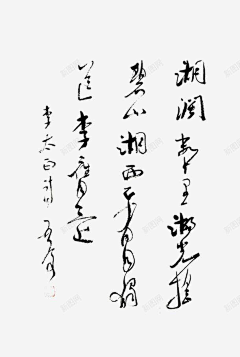 湖阔数千里湖光摇
碧山湖西正有月独
送李膺还
李太白诗